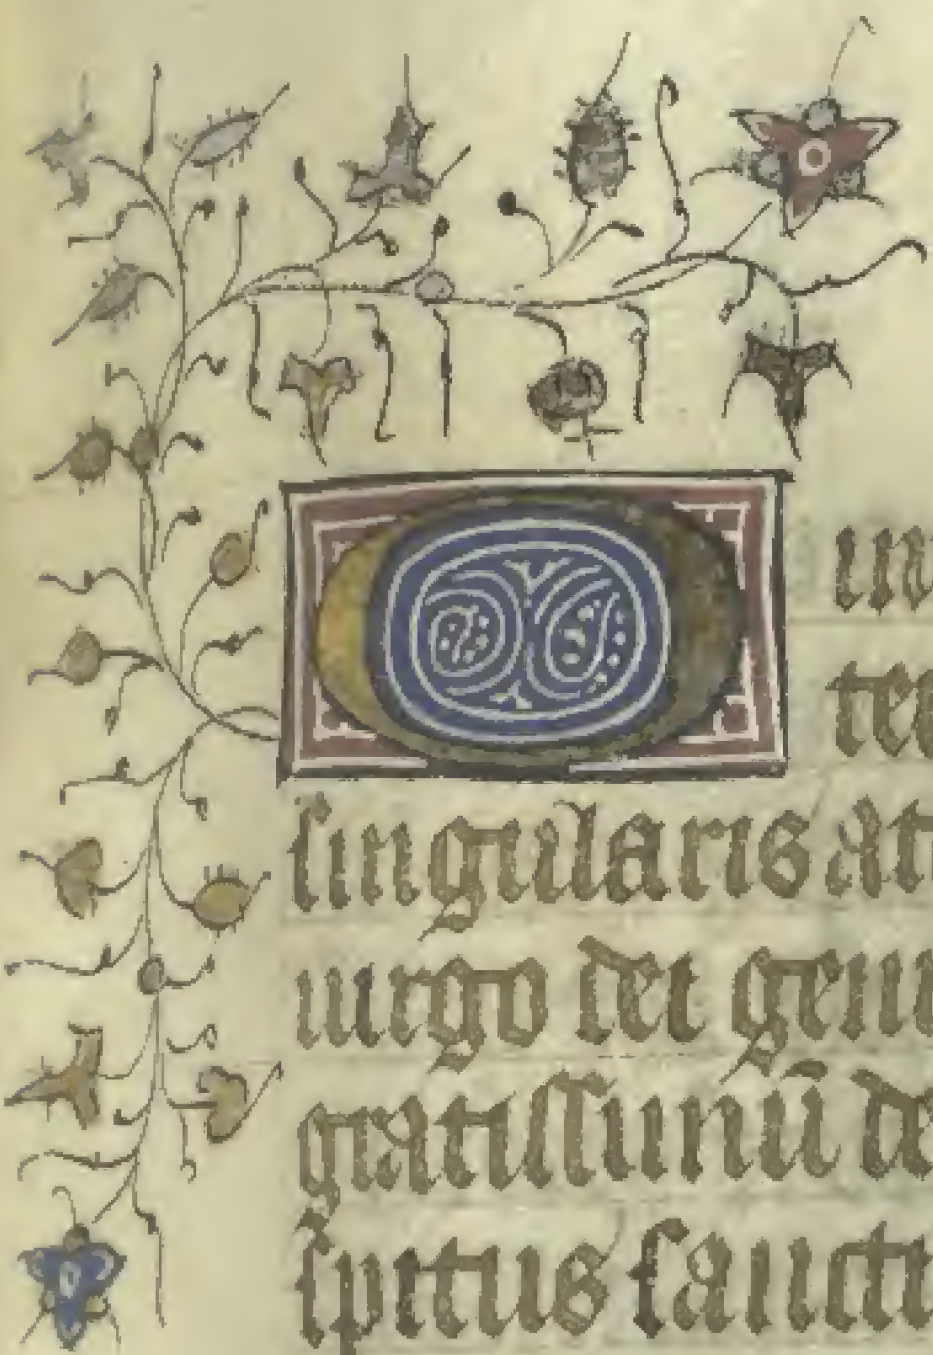 O in
te
singularis at
uirgo dei geni
gratissimū de
spiritus sancti